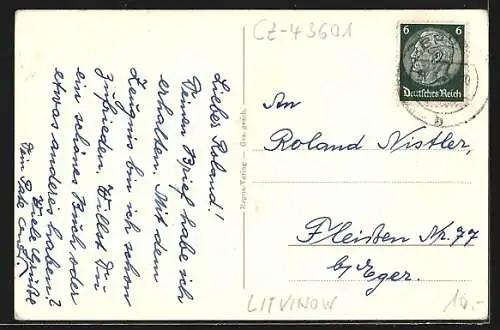 CZ-43601
Lieber Roland!
Deinen Brief habe ich
erhalten. Mit dem
Zeugnis bin ich schon
zufrieden. Willst Du
ein schönes Buch oder
etwas anderes haben?
Viele Grüße
Dein Pate
Repro-Verlag — Ges. gesch.
6 6
Deutsches Reich
b
An
Roland Nistler,
Fleißen Nr. 77
b/ Eger.
LITVINOW
10.-